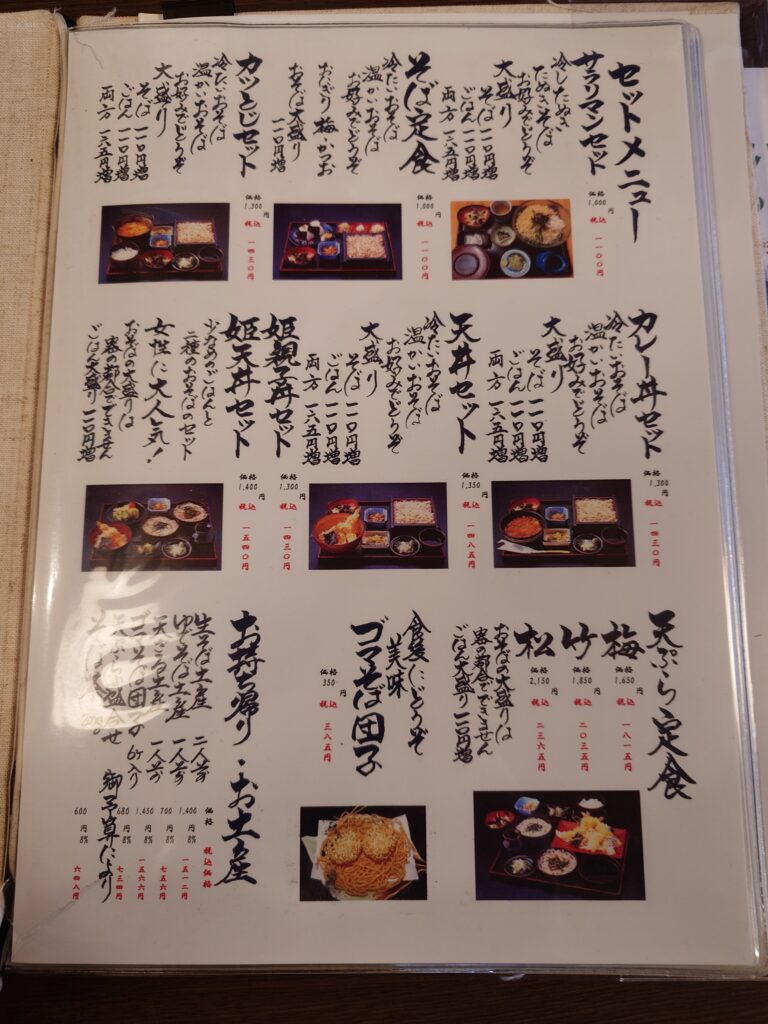 セットメニュー
サラリマンセット
冷したぬき
たぬきそば
お好みでどうぞ
大盛り
そば 一一〇円増
ごはん 一一〇円増
両方 一六五円増
価格
1,000円
税込
一一〇〇円
そば定食
冷たいおそば
温かいおそば
お好みでどうぞ
おにぎり 梅・かつお
おそば大盛り
一一〇円増
価格
1,000円
税込
一一〇〇円
カツとじセット
冷たいおそば
温かいおそば
お好みでどうぞ
大盛り
そば 一一〇円増
ごはん 一一〇円増
両方 一六五円増
価格
1,300円
税込
一四三〇円
カレー丼セット
冷たいおそば
温かいおそば
お好みでどうぞ
大盛り
そば 一一〇円増
ごはん 一一〇円増
両方 一六五円増
価格
1,300円
税込
一四三〇円
天丼セット
冷たいおそば
温かいおそば
お好みでどうぞ
大盛り
そば 一一〇円増
ごはん 一一〇円増
両方 一六五円増
価格
1,350円
税込
一四八五円
姫親子丼セット
価格
1,300円
税込
一四三〇円
姫天丼セット
価格
1,400円
税込
一五四〇円
少なめのごはんと
二種のおそばのセット
女性に大人気!
おそばの大盛りは
器の都合でできません
ごはん大盛り 一一〇円増
天ぷら定食
梅
価格
1,650円
税込
一八一五円
竹
価格
1,850円
税込
二〇三五円
松
価格
2,150円
税込
二三六五円
おそばの大盛りは
器の都合でできません
ごはん大盛り 一一〇円増
食後にどうぞ
美味
ゴマそば団子
価格
350円
税込
三八五円
お持ち帰り・お土産
価格
税込価格
生そば土産 二人前
1,400円
8%
一五一二
ゆでそば土産 一人前
700円
8%
七五六円
天ざる土産 一人前
1,450円
8%
一五六六円
ゴマそば団子 6ケ入り
680円
8%
七三四円
天ぷら盛合せ 御予算により
600円
8%
六四八円